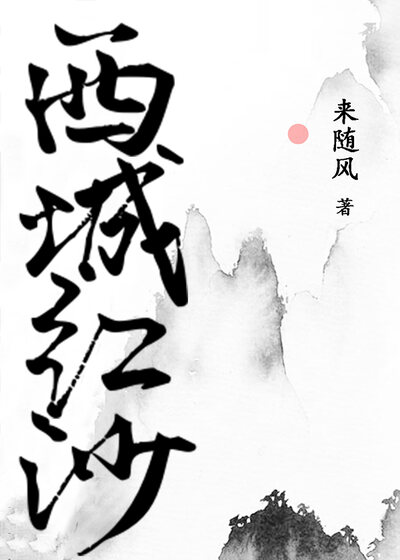 西城红沙
来随风 著